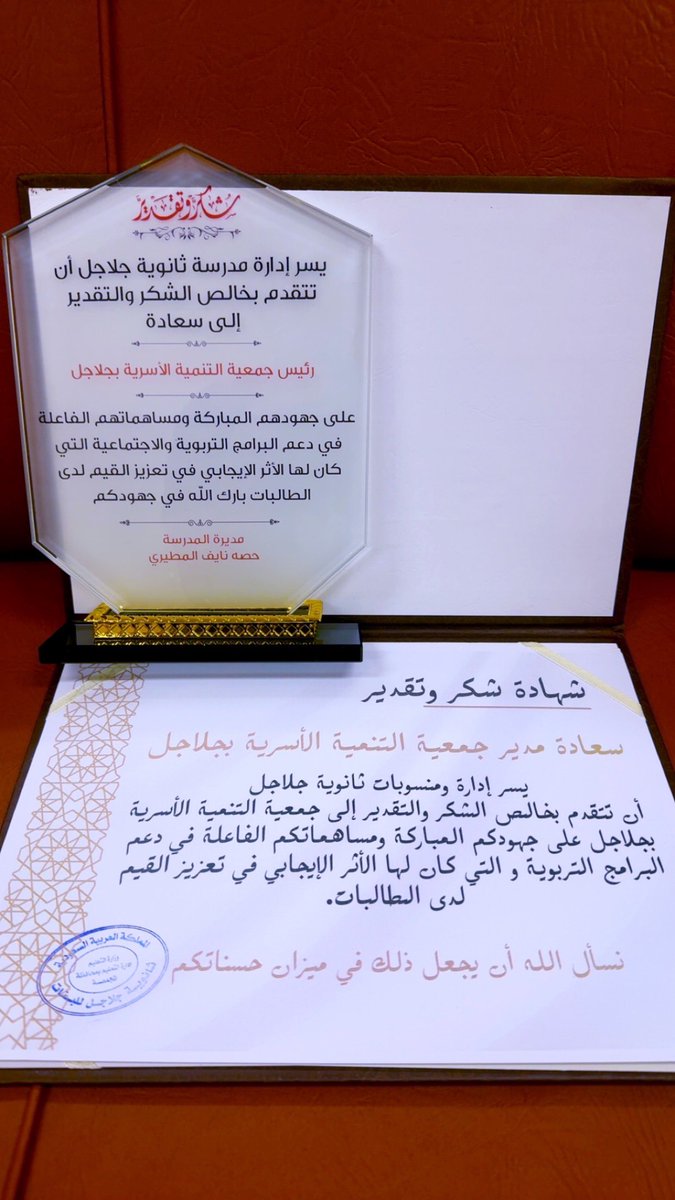 شكر وتقدير
يسر إدارة مدرسة ثانوية جلاجل أن
تتقدم بخالص الشكر والتقدير
إلى سعادة
رئيس جمعية التنمية الأسرية بجلاجل
على جهودهم المباركة ومساهماتهم الفاعلة
في دعم البرامج التربوية والاجتماعية التي
كان لها الأثر الإيجابي في تعزيز القيم لدى
الطالبات بارك الله في جهودكم
مديرة المدرسة
حصه نايف المطيري
شهادة شكر وتقدير
سعادة مدير جمعية التنمية الأسرية بجلاجل
يسر إدارة ومنسوبات ثانوية جلاجل
أن تتقدم بخالص الشكر والتقدير إلى جمعية التنمية الأسرية
بجلاجل على جهودكم المباركة ومساهماتكم الفاعلة في دعم
البرامج التربوية و التي كان لها الأثر الإيجابي في تعزيز القيم
لدى الطالبات.
نسأل الله أن يجعل ذلك في ميزان حسناتكم
المملكة العربية السعودية
وزارة التعليم
ثانوية جلاجل للبنات